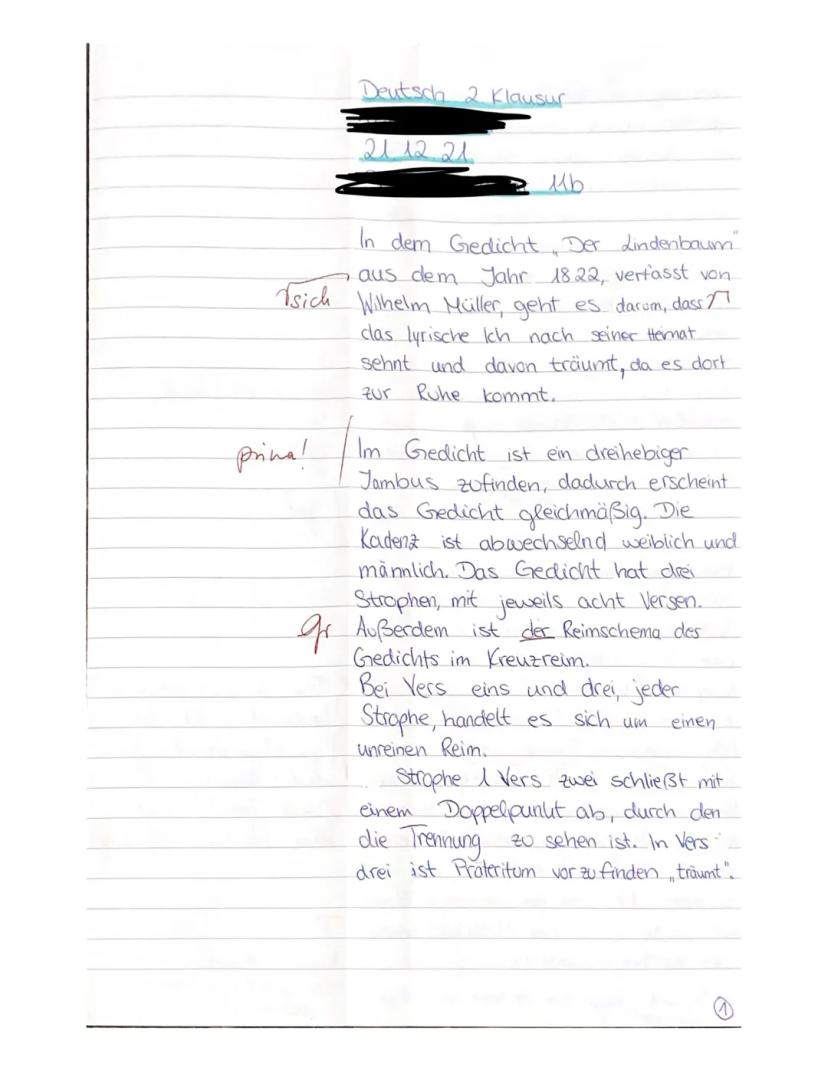 Deutsch 2. Klausur
21.12.21
11b
In dem Gedicht „Der Lindenbaum"
aus dem Jahr 1822, verfasst von
Γsich Wilhelm Müller, geht es darum, dass Γ
das lyrische Ich nach seiner Heimat
sehnt und davon träumt, da es dort
zur Ruhe kommt.
prima! Im Gedicht ist ein dreihebiger
Jambus zufinden, dadurch erscheint
das Gedicht gleichmäßig. Die
Kadenz ist abwechselnd weiblich und
männlich. Das Gedicht hat drei
Strophen, mit jeweils acht Versen.
gr Außerdem ist der Reimschema des
Gedichts im Kreuzreim.
Bei Vers eins und drei, jeder
Strophe, handelt es sich um einen
unreinen Reim.
Strophe 1 Vers zwei schließt mit
einem Doppelpunkt ab, durch den
die Trennung zu sehen ist. In Vers
drei ist Präteritum vorzufinden „träumt".
1